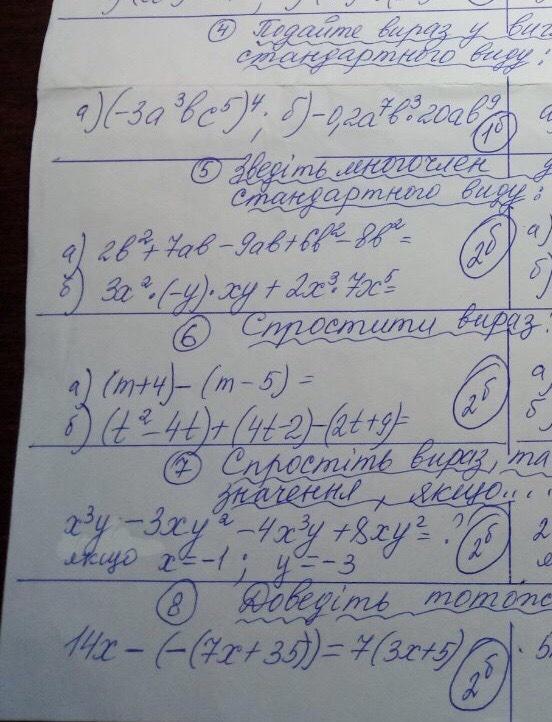 ④ Подайте вираз у виг
стандартного виду:
а) (-3a³bc⁵)⁴; б) -0,2a⁷b³·20ab⁹
1б
⑤ Зведіть многочлен у
стандартного виду:
а) 2b²+7ab-9ab+6b²-8b²=
б) 3x²·(-y)·xy+2x³·7x⁵=
2б
а)
б)
⑥ Спростити вираз:
а) (m+4)-(m-5)=
б) (t²-4t)+(4t-2)-(2t+9)=
2б
а)
б)
⑦ Спростіть вираз, та
значення, якщо....
x³y-3xy²-4x³y+8xy²=?
якщо x=-1; y=-3
2б
2
⑧ Доведіть тотож
14x-(-(7x+35))=7(3x+5)
2б